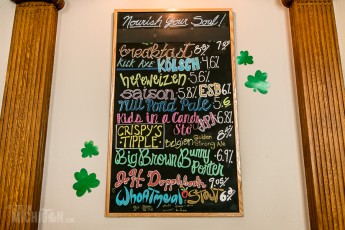 Nourish Your Soul!
breakfast 8% 7.9
Kick Axe KÖLSCH 4.6%
hefeweizen 5.6%
saison 5.8% ESB 6%
Mill Pond Pale 5.
Kids in a Candy
Sto IPA
CRISPY'S Belgian Golden
TIPPLE Strong Ale 8%
Big Brown Bunny 6.9%
Porter
Doppelbock
Whoatmeal Stout 6%